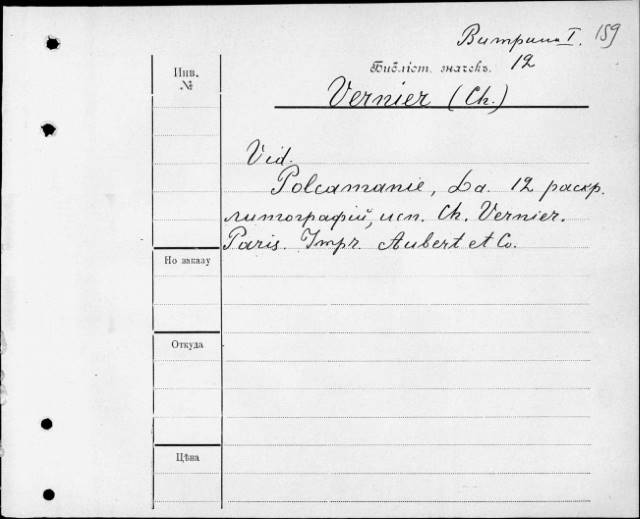 Витрина I. 159
Бібліот. значекъ. 12
Инв.
№
Vernier (Ch.)
Vid.
Polcamanie, La. 12 раскр.
литографій, исп. Ch. Vernier.
Paris. Impr. Aubert et Co.
Но заказу
Откуда
Цѣна